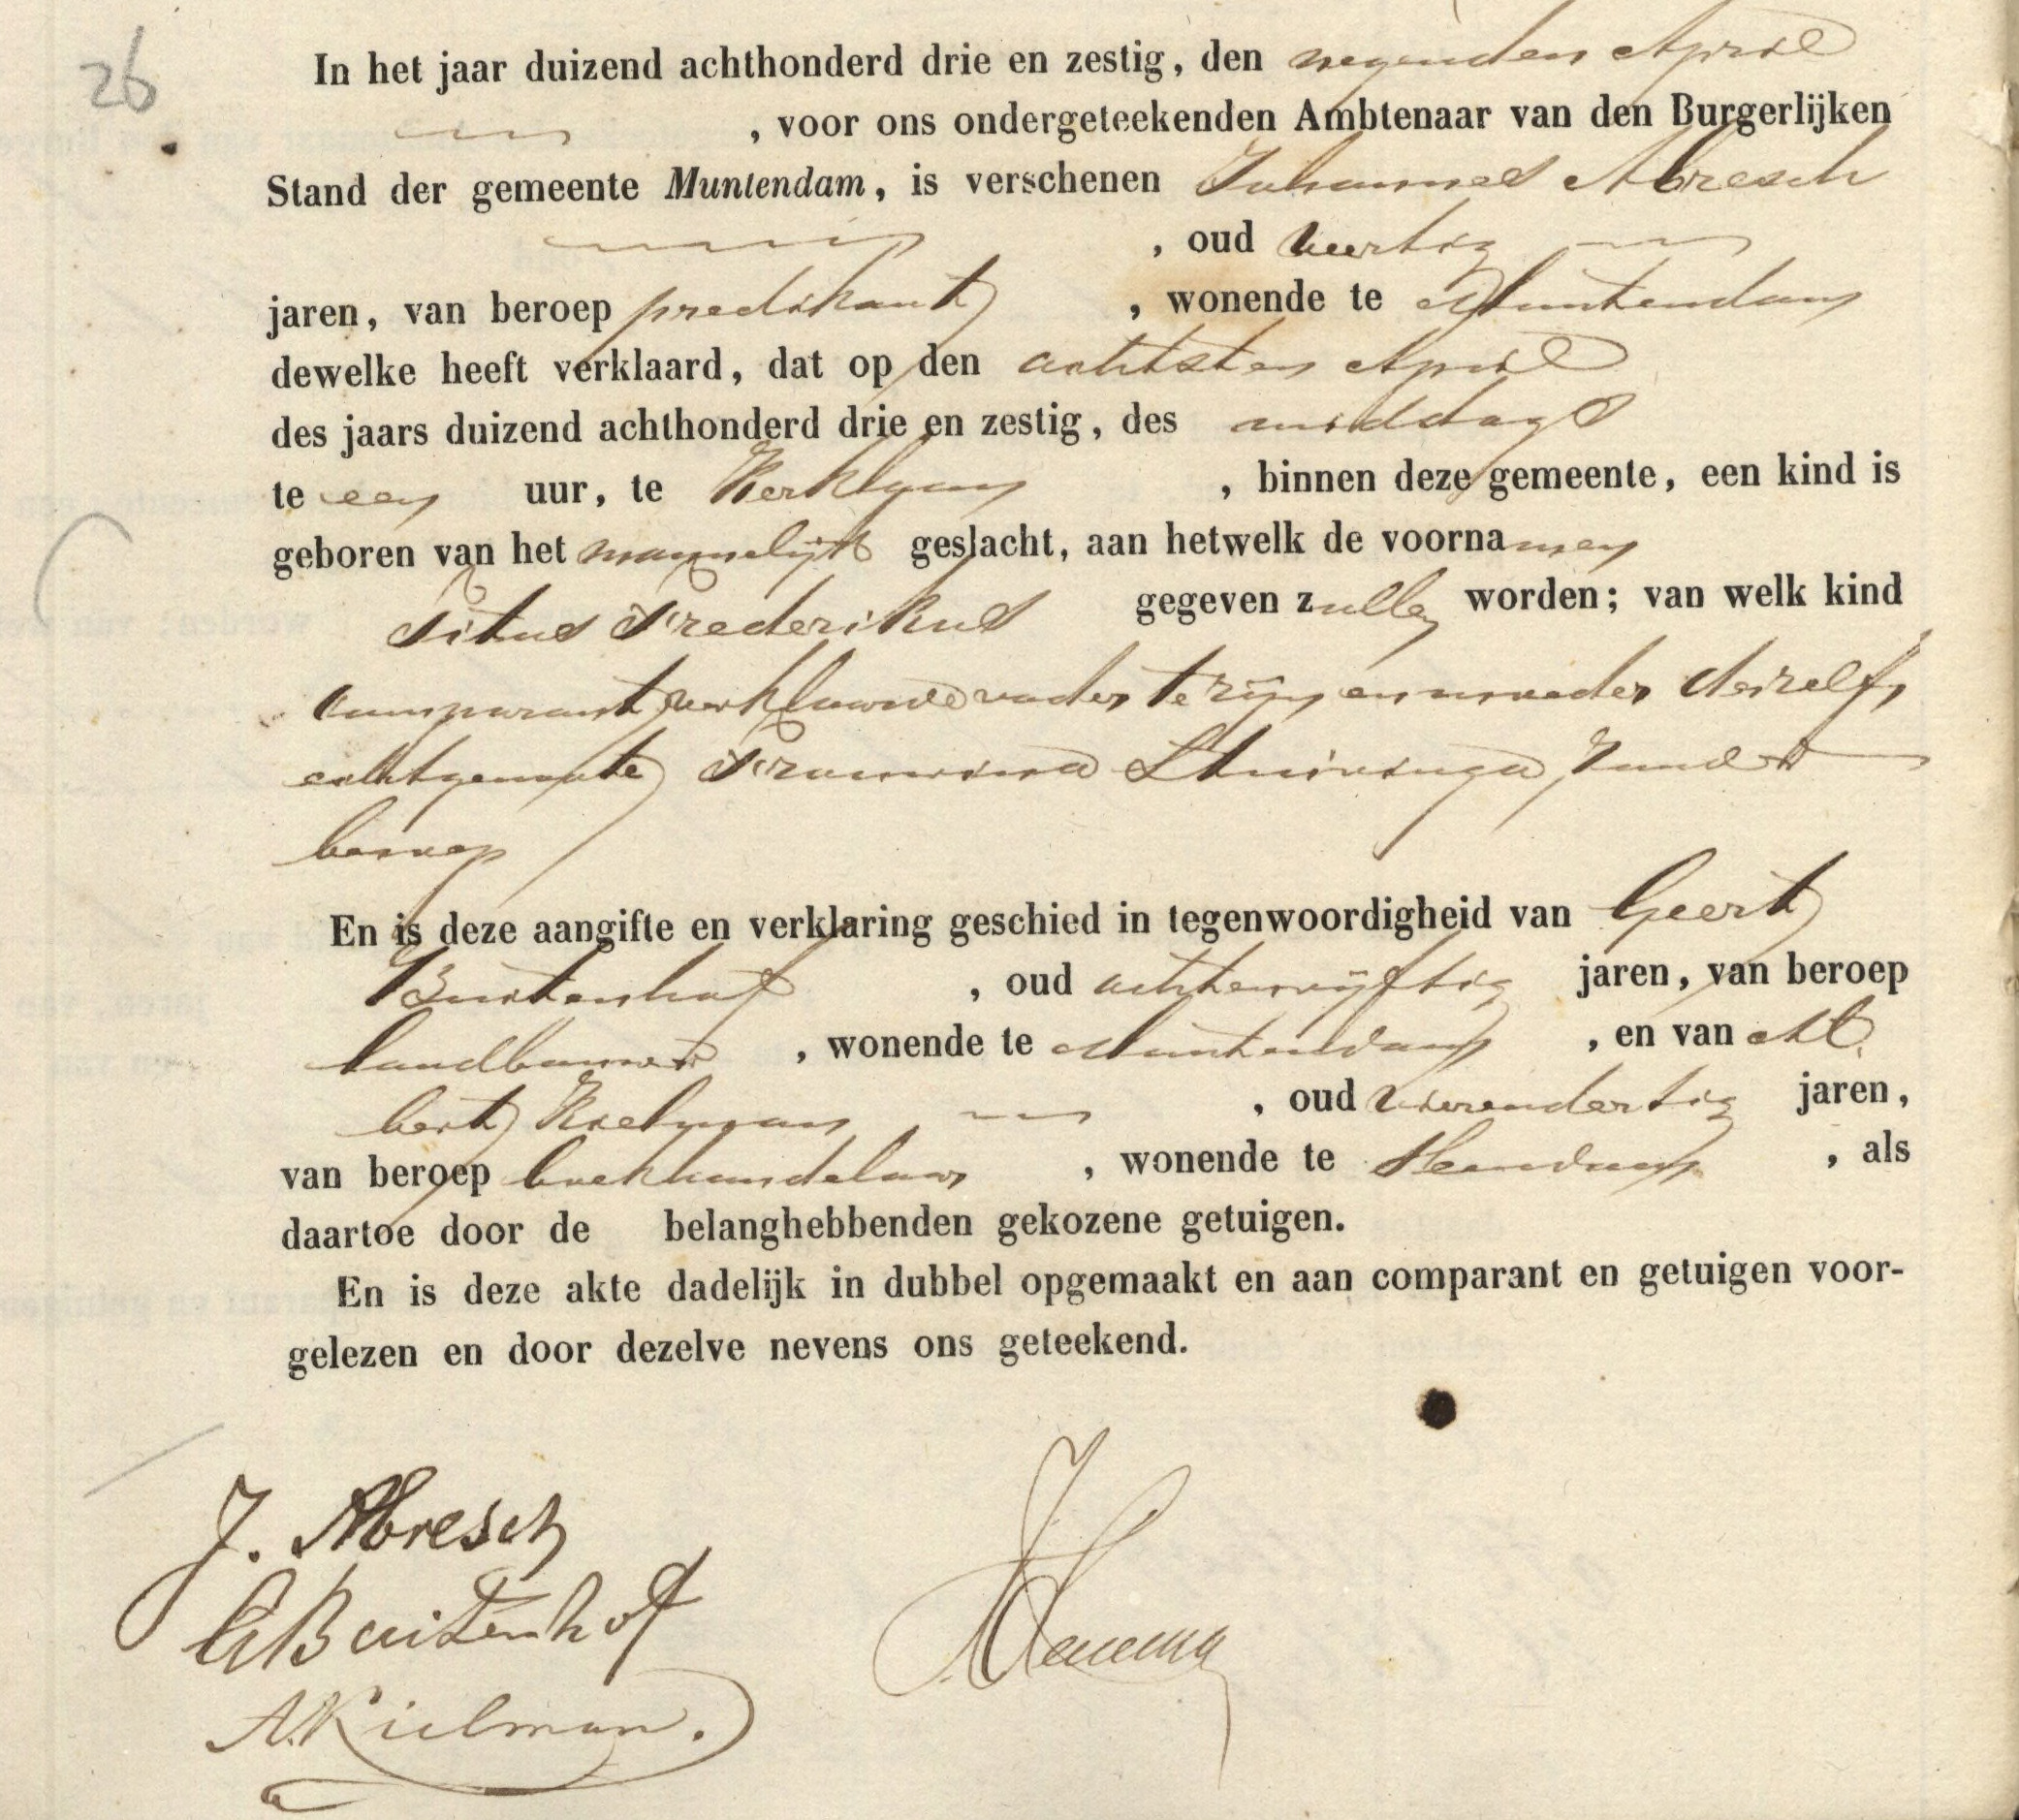 26
In het jaar duizend achthonderd drie en zestig, den negenden April
, voor ons ondergeteekenden Ambtenaar van den Burgerlijken
Stand der gemeente Muntendam, is verschenen Johannes Abresch
, oud veertig
jaren, van beroep predikant, wonende te Muntendam
dewelke heeft verklaard, dat op den achtsten April
des jaars duizend achthonderd drie en zestig, des middags
te een uur, te Kerklaan, binnen deze gemeente, een kind is
geboren van het mannelijk geslacht, aan hetwelk de voornamen
Titus Frederikus gegeven zullen worden; van welk kind
comparant verklaarde vader te zijn en moeder deszelfs
echtgenoote Frouwina Thuininga, zonder
beroep
En is deze aangifte en verklaring geschied in tegenwoordigheid van Geert
Buitenhof, oud achtenvijftig jaren, van beroep
landbouwer, wonende te Muntendam, en van Al
bert Kielman, oud vierendertig jaren,
van beroep boekhandelaar, wonende te Veendam, als
daartoe door de belanghebbenden gekozene getuigen.
En is deze akte dadelijk in dubbel opgemaakt en aan comparant en getuigen voor-
gelezen en door dezelve nevens ons geteekend.
J. Abresch
G Buitenhof
A. Kielman.